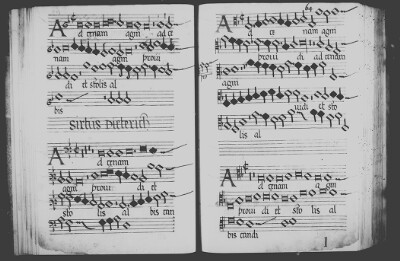 Ad cenam agni
nam agni provi
di et stolis al
bis
Sixtus Dietrich
Ad cenam
agni provi di et
sto lis al bis can
Ad ce nam agni
provi di ad cenam
agni
vidi et sto
lis al
Ad cenam agni
provi di et sto lis al
bis candi
1